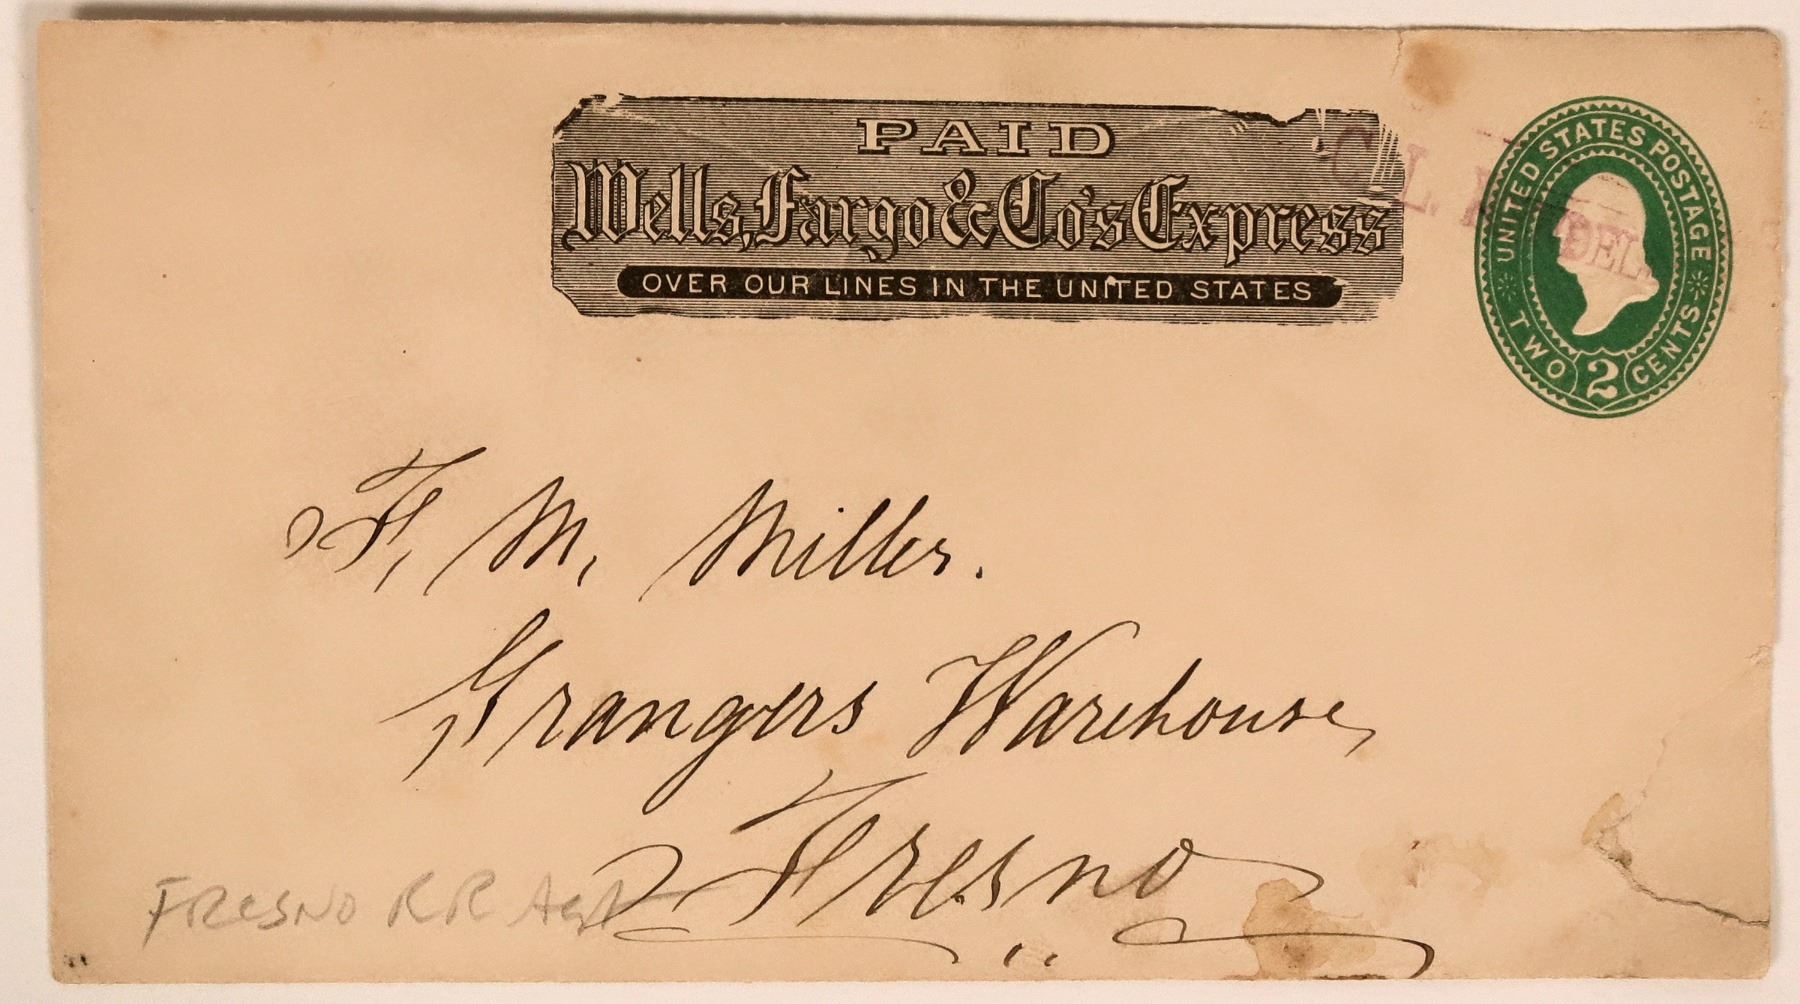 PAID
Wells, Fargo & Co's Express
OVER OUR LINES IN THE UNITED STATES
UNITED STATES POSTAGE
TWO 2 CENTS
DEL.
F. M. Miller.
Grangers Warehouse,
Fresno
FRESNO RR Agt